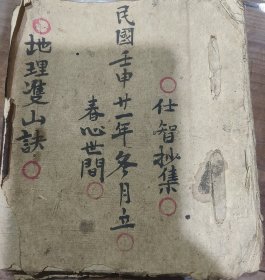 仕智抄集
民國壬申廿一年冬月立
春心世間
地理雙山訣